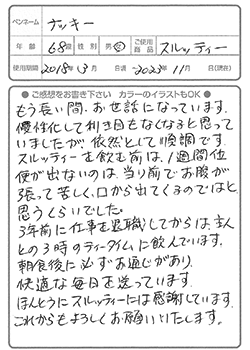 ペンネーム ナッキー
年齢 68歳 性別 男・女 ご使用商品 スルッティー
使用期間 2018年3月 日頃 〜 2023年11月 日(現在)
● ご感想をお書き下さい カラーのイラストもOK ●
もう長い間、お世話になっています。
慢性化して利き目もなくなると思って
いましたが、依然として順調です。
スルッティーを飲む前は、1週間位
便が出ないのは、当り前でお腹が
張って苦しく、口から出てくるのではと
思うくらいでした。
3年前に仕事を退職してからは、主人
との3時のティータイムに飲んでいます。
朝食後に必ずお通じがあり、
快適な毎日を送っています。
ほんとうにスルッティーには感謝しています。
これからもよろしくお願いいたします。